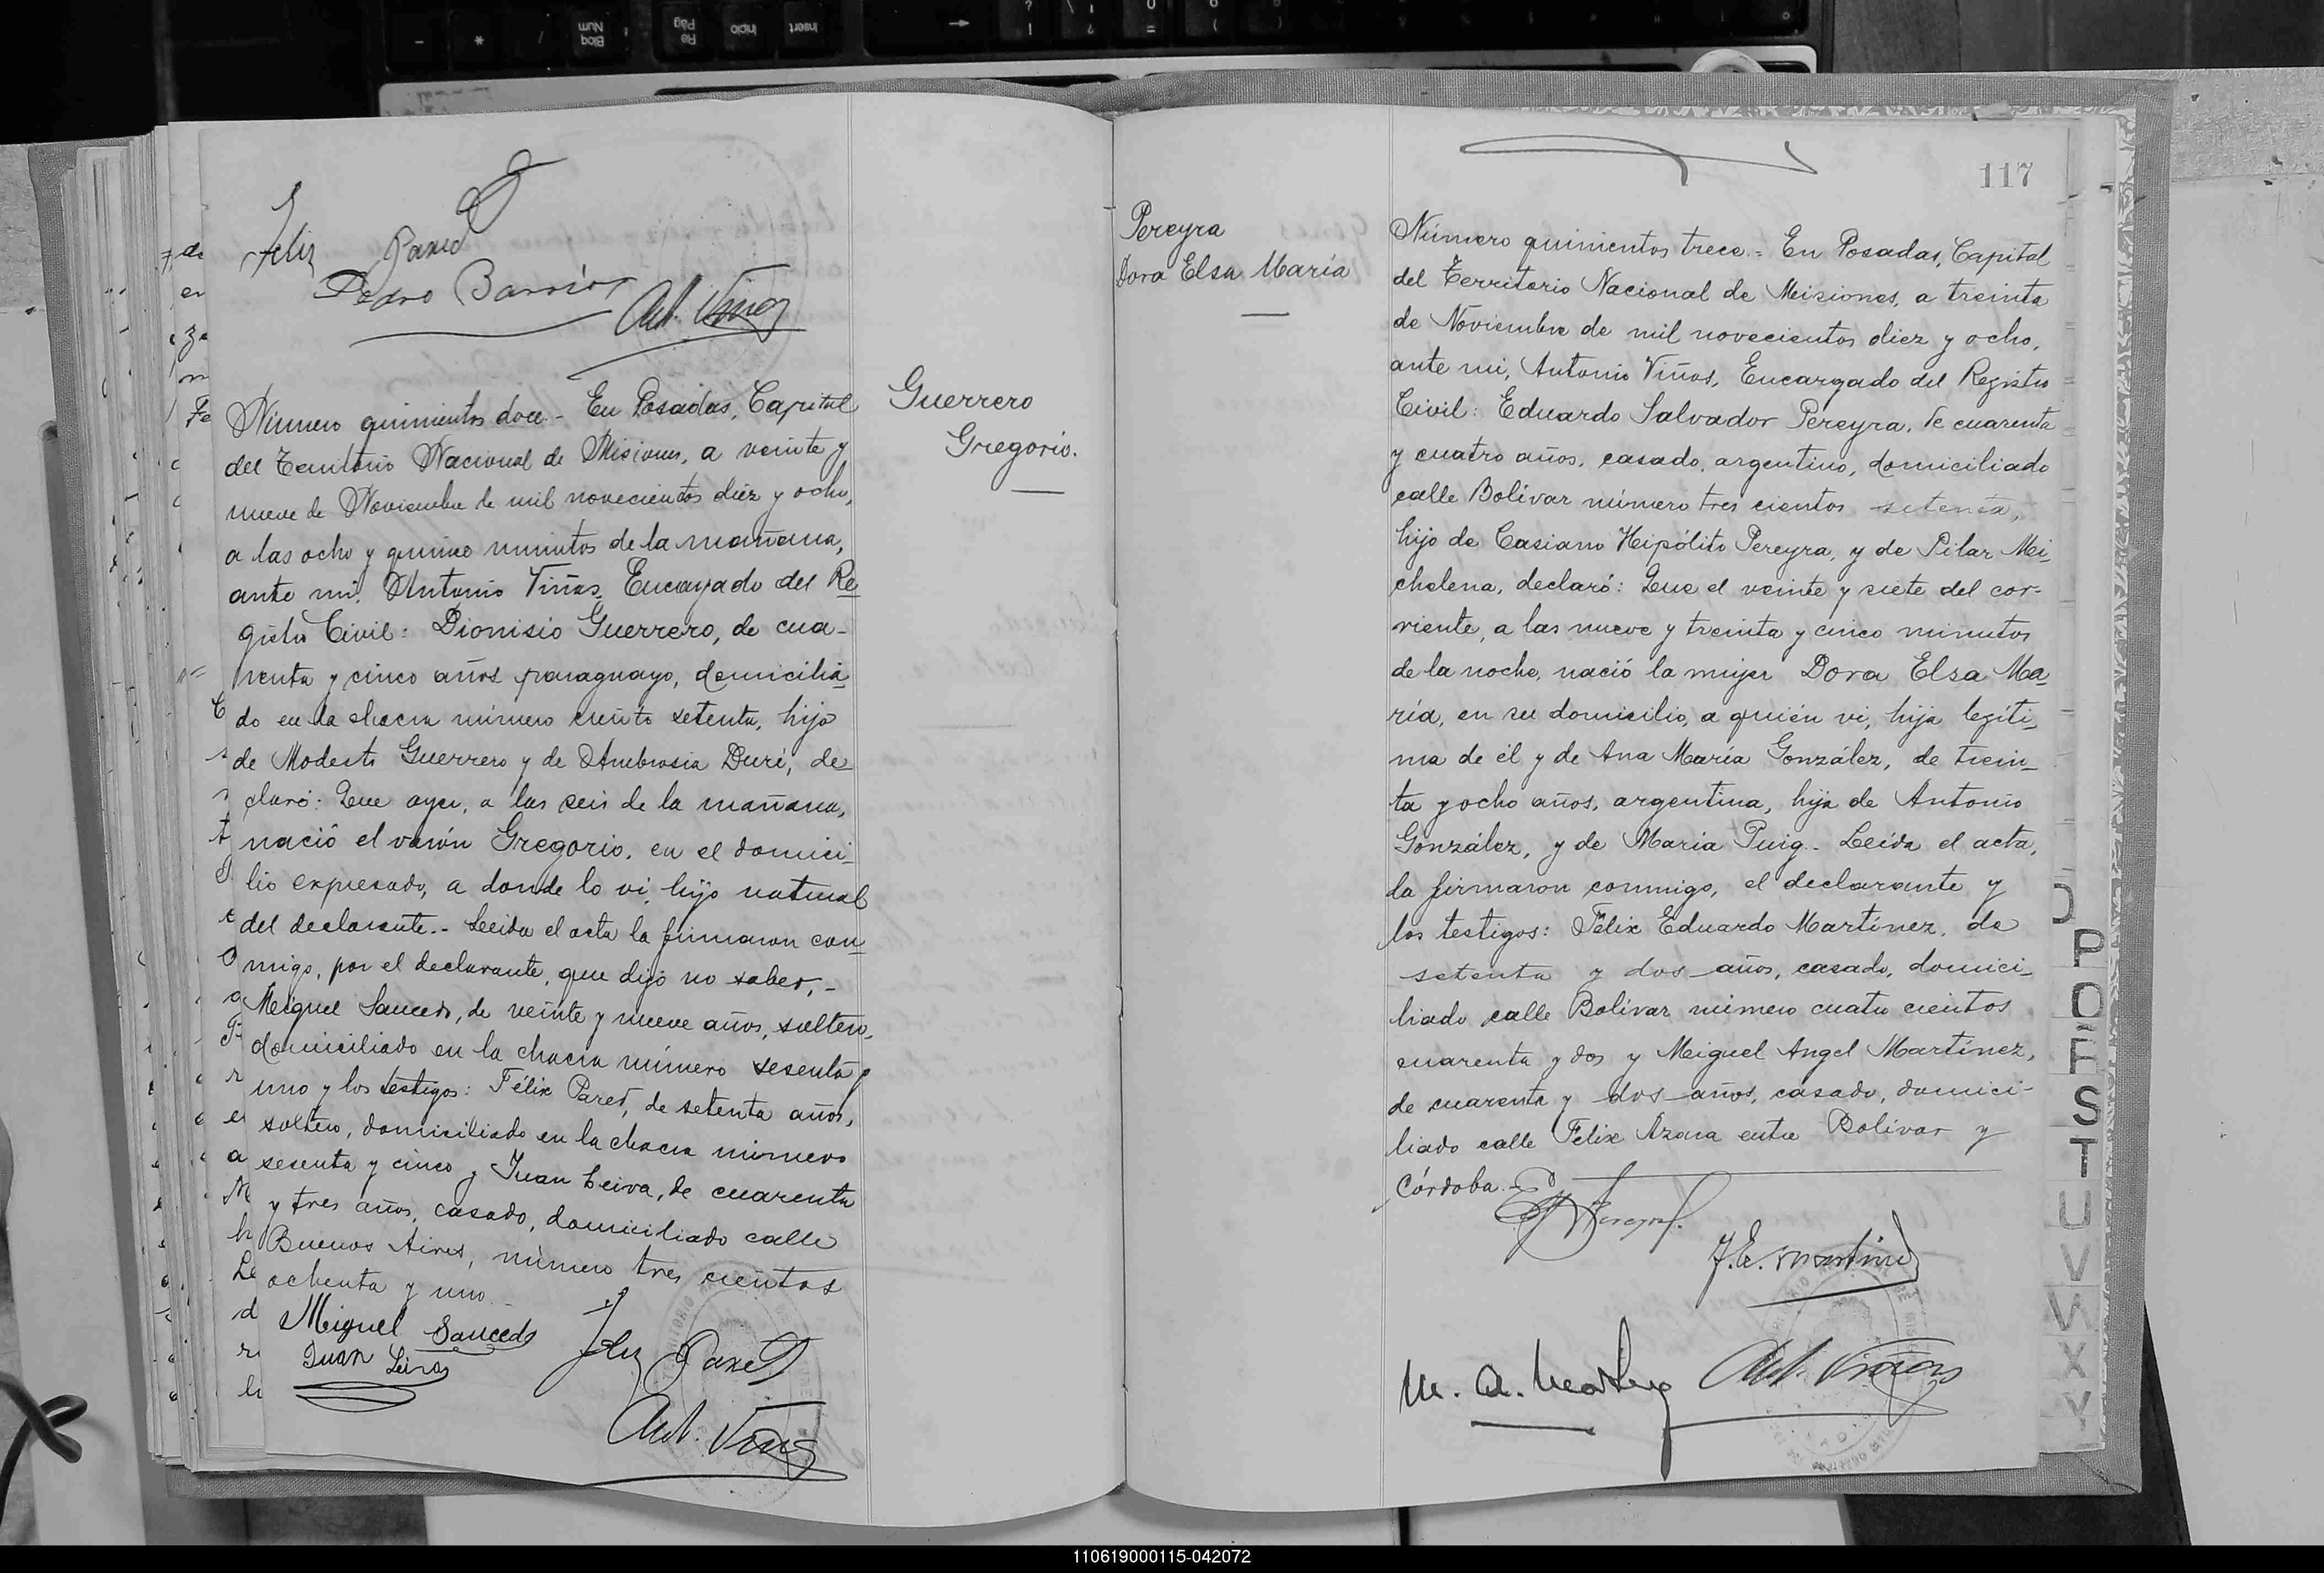 Felix Paret
Pedro Barrios
Ant. Viñas
Guerrero
Gregorio.
Número quinientos doce - En Posadas, Capital
del Territorio Nacional de Misiones, a veinte y
nueve de Noviembre de mil novecientos diez y ocho,
a las ocho y quince minutos de la mañana,
ante mi, Antonio Viñas, Encargado del Re
gistro Civil: Dionisio Guerrero, de cua-
renta y cinco años paraguayo, domicilia
do en la chacra número ciento setenta, hijo
de Modesto Guerrero y de Ambrosia Duré, de
claró: Que ayer, a las seis de la mañana,
nació el varón Gregorio, en el domici
lio expresado, a donde lo vi, hijo natural
del declarante.- Leida el acta la firmaron con
migo, por el declarante, que dijo no saber, -
Miguel Saucedo, de veinte y nueve años, soltero,
domiciliado en la chacra número sesenta y
uno y los testigos: Félix Paret, de setenta años,
soltero, domiciliado en la chacra número
sesenta y cinco y Juan Leiva, de cuarenta
y tres años, casado, domiciliado calle
Buenos Aires, número tres cientos
ochenta y uno -
Miguel Saucedo
Juan Leiva
Felix Paret
Ant. Viñas
117
Pereyra
Dora Elsa María
Número quinientos trece.- En Posadas, Capital
del Territorio Nacional de Misiones, a treinta
de Noviembre de mil novecientos diez y ocho,
ante mi, Antonio Viñas, Encargado del Registro
Civil: Eduardo Salvador Pereyra, de cuarenta
y cuatro años, casado, argentino, domiciliado
calle Bolívar número tres cientos setenta,
hijo de Casiano Hipólito Pereyra, y de Pilar Mi
chelena, declaró: Que el veinte y siete del cor-
riente, a las nueve y treinta y cinco minutos
de la noche, nació la mujer Dora Elsa Ma
ría, en su domicilio, a quién vi, hija legíti
ma de él y de Ana María González, de trein
ta y ocho años, argentina, hija de Antonio
González, y de María Puig - Leída el acta,
la firmaron conmigo, el declarante y
los testigos: Félix Eduardo Martínez, de
setenta y dos años, casado, domici
liado calle Bolívar número cuatro cientos
cuarenta y dos y Miguel Angel Martínez,
de cuarenta y dos años, casado, domici-
liado calle Felix Azara entre Bolívar y
Córdoba.-
Pereyra
F. E. Martinez
M. A. Martinez
Ant. Viñas
P
Q
R
S
T
U
V
W
X
Y
110619000115-042072